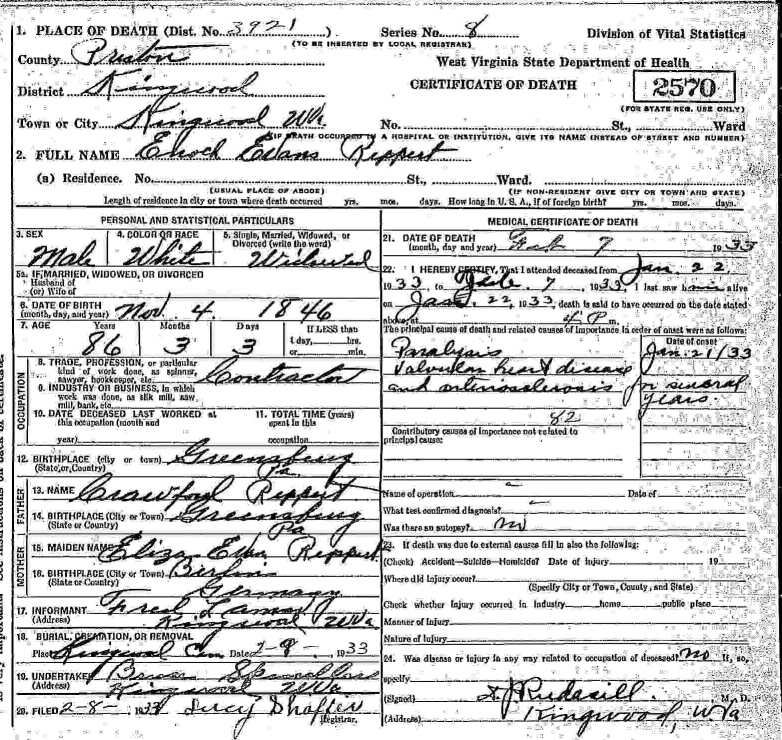 1. PLACE OF DEATH (Dist. No. 3921 ) Series No. 8 Division of Vital Statistics
(TO BE INSERTED BY LOCAL REGISTRAR)
County Preston West Virginia State Department of Health
District Kingwood CERTIFICATE OF DEATH 2570
(FOR STATE REG. USE ONLY)
Town or City Kingwood WVa No. St., Ward
(IF DEATH OCCURRED IN A HOSPITAL OR INSTITUTION, GIVE ITS NAME INSTEAD OF STREET AND NUMBER)
2. FULL NAME Enoch Evans Rippert
(a) Residence. No. St., Ward.
(USUAL PLACE OF ABODE) (IF NON-RESIDENT GIVE CITY OR TOWN AND STATE)
Length of residence in city or town where death occurred yrs. mos. days. How long in U. S. A., if of foreign birth? yrs. mos. days.
PERSONAL AND STATISTICAL PARTICULARS
3. SEX 4. COLOR OR RACE 5. Single, Married, Widowed, or
Divorced (write the word)
Male White Widowed
5a. IF MARRIED, WIDOWED, OR DIVORCED
Husband of
(or) Wife of
6. DATE OF BIRTH
(month, day, and year) Nov. 4. 1846
7. AGE Years Months Days If LESS than
86 3 3 1 day, hrs.
or min.
OCCUPATION
8. TRADE, PROFESSION, or particular
kind of work done, as spinner,
sawyer, bookkeeper, etc. Contractor
9. INDUSTRY OR BUSINESS, in which
work was done, as silk mill, saw
mill, bank, etc.
10. DATE DECEASED LAST WORKED at 11. TOTAL TIME (years)
this occupation (month and spent in this
year) occupation
12. BIRTHPLACE (city or town) Greensburg
(State, or, Country) Pa.
FATHER
13. NAME Crawford Rippert
14. BIRTHPLACE (City or Town) Greensburg
(State or Country) Pa
MOTHER
15. MAIDEN NAME Eliza Rippert
16. BIRTHPLACE (City or Town) Berlin
(State or Country) Germany
17. INFORMANT Fred
(Address) Kingwood WVa
18. BURIAL, CREMATION, OR REMOVAL
Place Kingwood Cem Date 2-9- 1933
19. UNDERTAKER
(Address) Kingwood WVa
20. FILED 2-8- 1933 Lucy Shaffer
Registrar.
MEDICAL CERTIFICATE OF DEATH
21. DATE OF DEATH
(month, day and year) Feb 7 1933
22. I HEREBY CERTIFY, That I attended deceased from Jan. 22
1933 to Feb. 7, 1933. I last saw him alive
on Jan. 22, 1933, death is said to have occurred on the date stated
above, at 4 P m.
The principal cause of death and related causes of importance in order of onset were as follows:
Date of onset
Paralysis Jan. 21/33
Valvular heart disease
and arteriosclerosis for several
years.
82
Contributory causes of importance not related to
principal cause:
Name of operation Date of
What test confirmed diagnosis?
Was there an autopsy? no
23. If death was due to external causes fill in also the following:
(Check) Accident—Suicide—Homicide? Date of Injury 19
Where did Injury occur?
(Specify City or Town, County, and State)
Check whether Injury occurred in Industry home public place
Manner of Injury
Nature of Injury
24. Was disease or injury in any way related to occupation of deceased? no If, so,
specify
(Signed) Rudasill M. D.
(Address) Kingwood, WVa